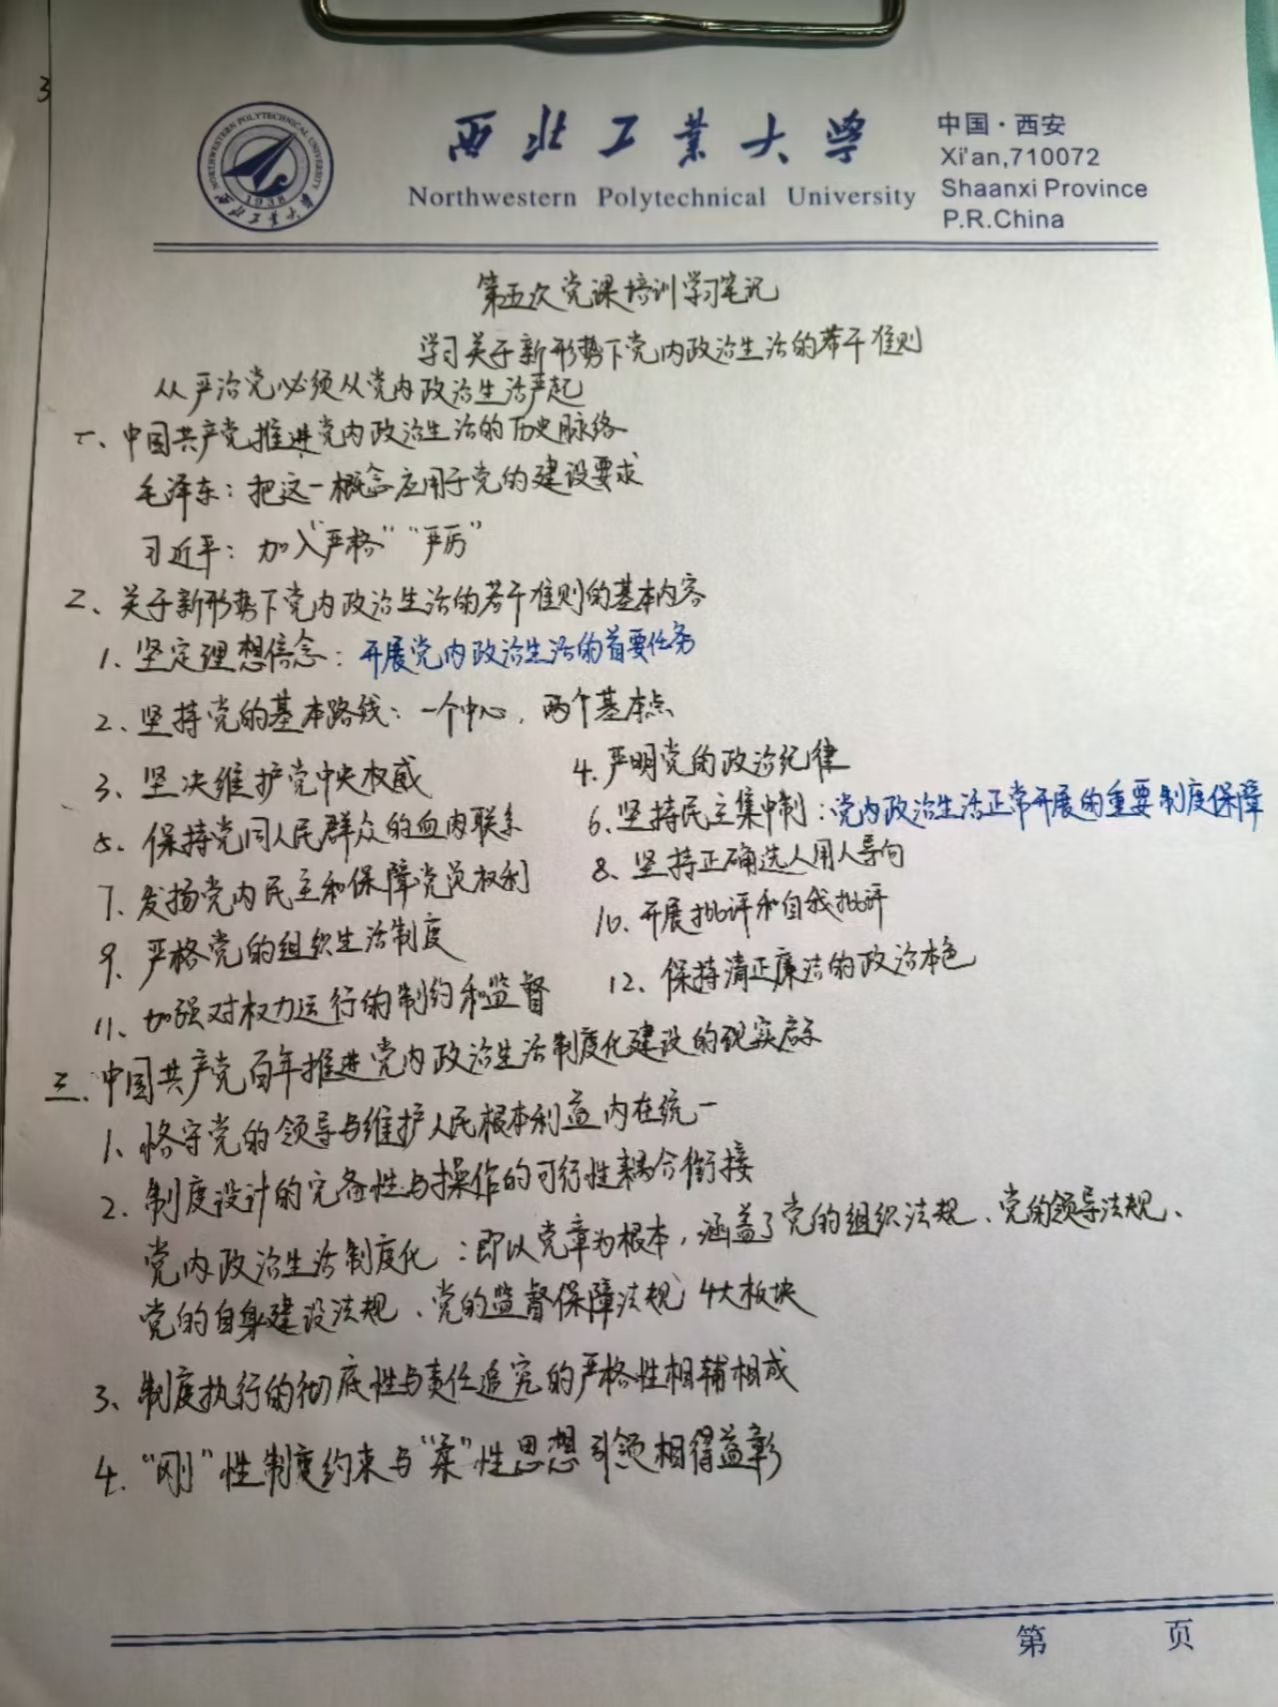 3
NORTHWESTERN POLYTECHNICAL UNIVERSITY
1938
西北工业大学
西北工业大学
Northwestern Polytechnical University
中国·西安
Xi'an,710072
Shaanxi Province
P.R.China
第五次党课培训学习笔记
学习关于新形势下党内政治生活的若干准则
从严治党必须从党内政治生活严起
一、中国共产党推进党内政治生活的历史脉络
毛泽东：把这一概念应用于党的建设要求
习近平：加入“严格”“严厉”
二、关于新形势下党内政治生活的若干准则的基本内容
1、坚定理想信念：开展党内政治生活的首要任务
2、坚持党的基本路线：一个中心，两个基本点
3、坚决维护党中央权威
4.严明党的政治纪律
5、保持党同人民群众的血肉联系
6、坚持民主集中制：党内政治生活正常开展的重要制度保障
7、发扬党内民主和保障党员权利
8、坚持正确选人用人导向
9、严格党的组织生活制度
10、开展批评和自我批评
11、加强对权力运行的制约和监督
12、保持清正廉洁的政治本色
三、中国共产党百年推进党内政治生活制度化建设的现实启示
1、恪守党的领导与维护人民根本利益内在统一
2、制度设计的完备性与操作的可行性耦合衔接
党内政治生活制度化：即以党章为根本，涵盖了党的组织法规、党的领导法规、
党的自身建设法规、党的监督保障法规 4大板块
3、制度执行的彻底性与责任追究的严格性相辅相成
4、“刚”性制度约束与“柔”性思想引领相得益彰
第 页